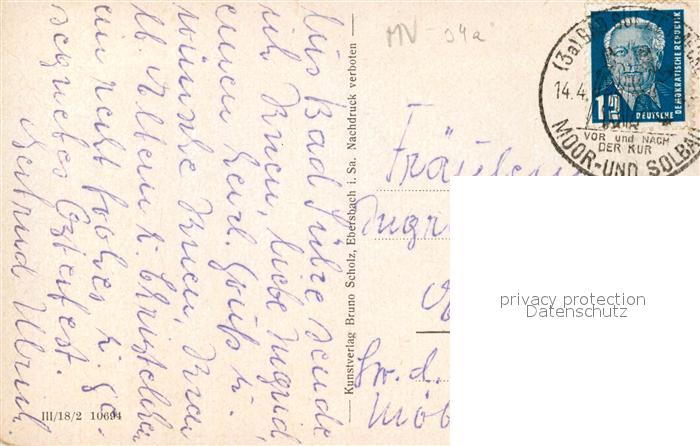 Aus Bad Sülze sende
ich Ihnen, liebe Ingrid
einen herzl. Gruß u.
wünsche Ihnen, Ihren
lb. Eltern u.
ein recht frohes u. ge-
segnetes Osterfest.
Gertrud
III/18/2 10694
Kunstverlag Bruno Scholz, Ebersbach i. Sa. Nachdruck verboten
MV - 34a
(3a) BAD SÜLZE
14.4.
VOR und NACH
DER KUR
MOOR-UND SOLBA
12
DEUTSCHE
DEMOKRATISCHE REPUBLIK
Fräulein
Ingr
privacy protection
Datenschutz